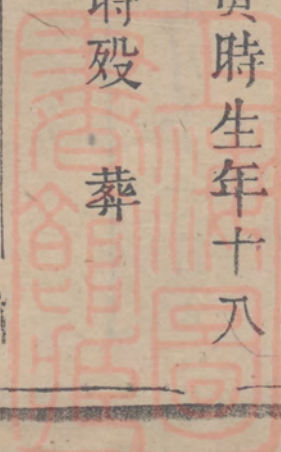 時生年十八
時殁 葬